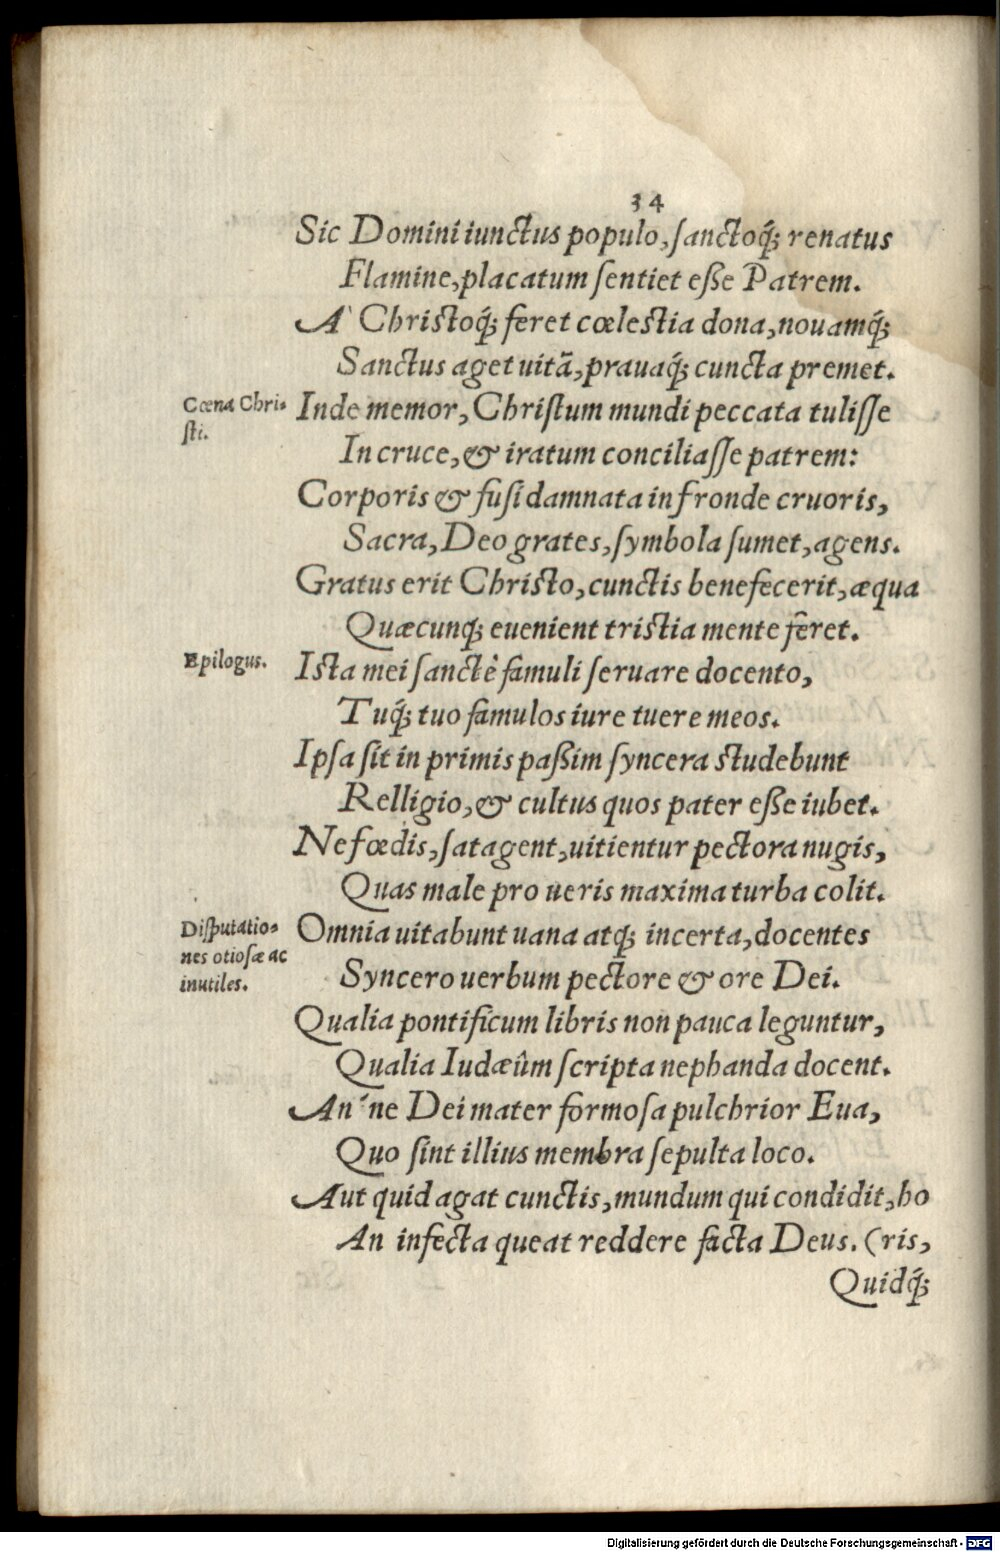 34
Sic Domini iunctus populo, sanctoq́; renatus
Flamine, placatum sentiet eße Patrem.
A` Christoq́; feret cœlestia dona, nouamq́;
Sanctus aget uitã, prauaq́; cuncta premet.
Cœna Chri-
sti.
Inde memor, Christum mundi peccata tulisse
In cruce, & iratum conciliasse patrem:
Corporis & fusi damnata in fronde cruoris,
Sacra, Deo grates, symbola sumet, agens.
Gratus erit Christo, cunctis benefecerit, æqua
Quæcunq; euenient tristia mente feret.
Epilogus.
Ista mei sanctè famuli seruare docento,
Tuq́; tuo famulos iure tuere meos.
Ipsa sit in primis paßim syncera studebunt
Relligio, & cultus quos pater eße iubet.
Ne fœdis, satagent, uitientur pectora nugis,
Quas male pro ueris maxima turba colit.
Disputatio-
nes otiosæ ac
inutiles.
Omnia uitabunt uana atq; incerta, docentes
Syncero uerbum pectore & ore Dei.
Qualia pontificum libris non pauca leguntur,
Qualia Iudæûm scripta nephanda docent.
An´ne Dei mater formosa pulchrior Eua,
Quo sint illius membra sepulta loco.
Aut quid agat cunctis, mundum qui condidit, ho
An infecta queat reddere facta Deus. (ris,
Quidq́;
Digitalisierung gefördert durch die Deutsche Forschungsgemeinschaft - DFG